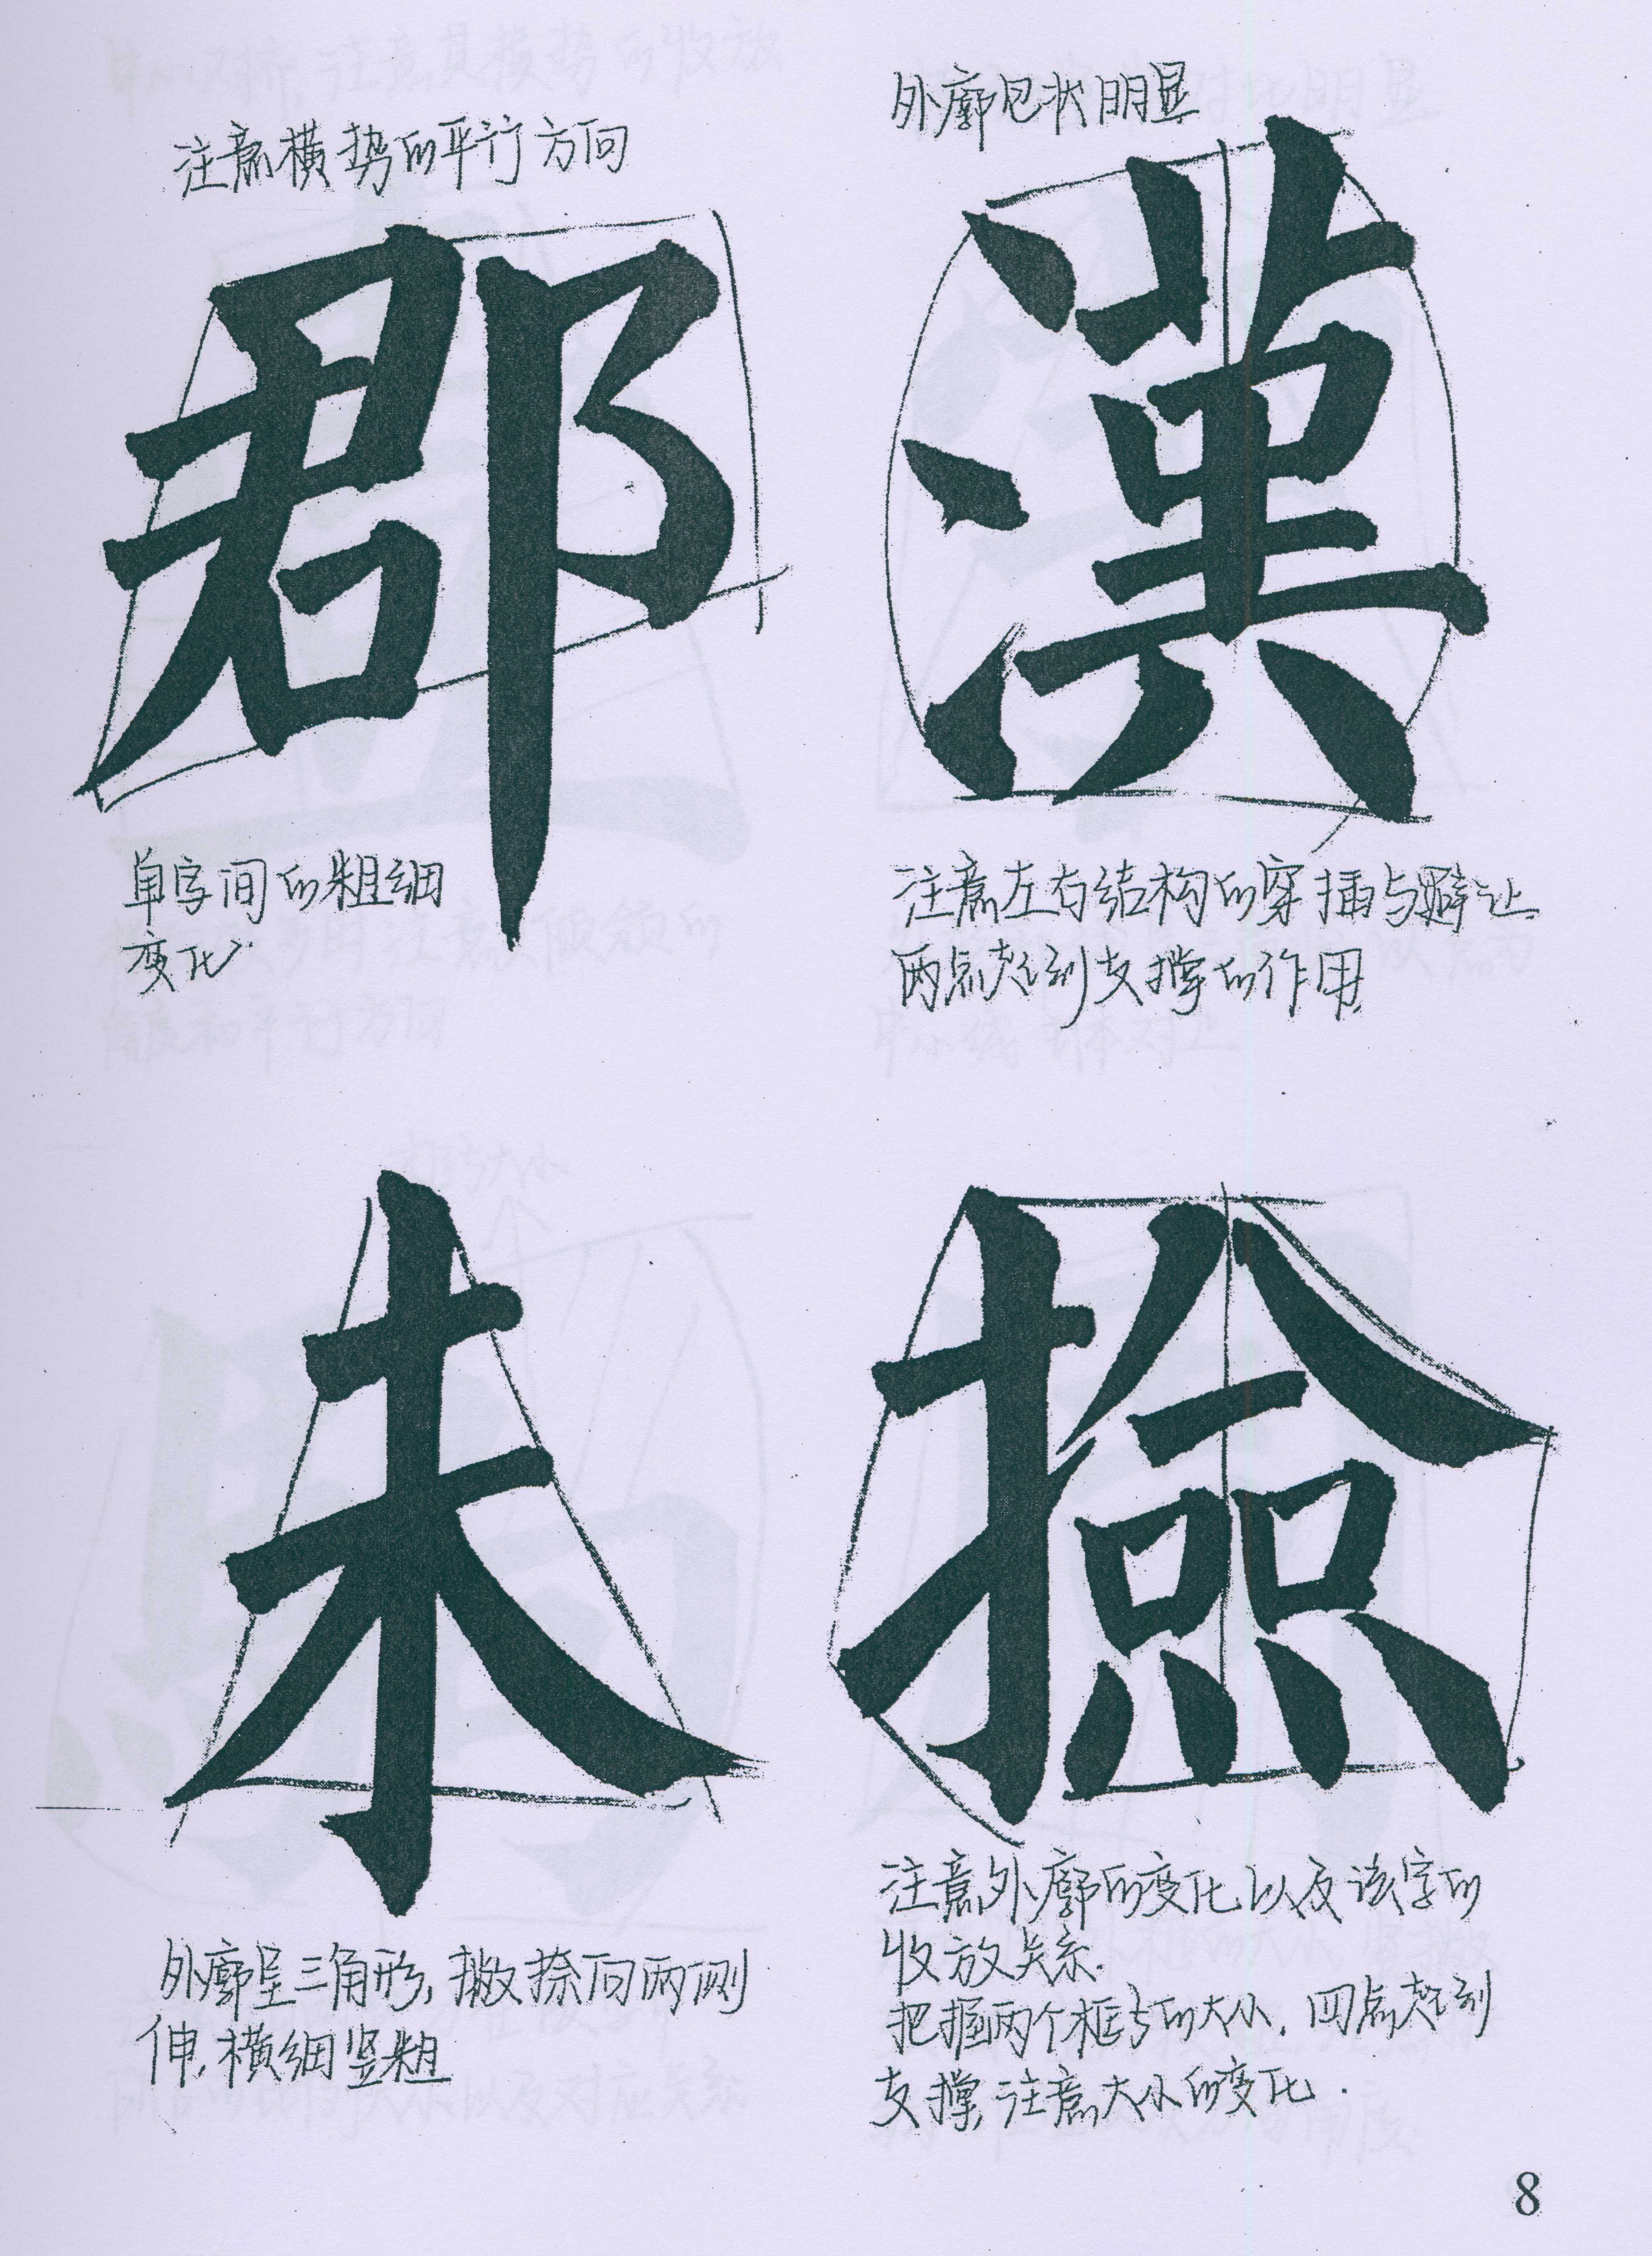 注意横势的平行方向
郡
单字间的粗细
变化.
外廓包状明显
漢
注意左右结构的穿插与避让.
两点起到支撑的作用.
未
外廓呈三角形,撇捺向两侧
伸,横细竖粗
撿
注意外廓的变化以及该字的
收放关系.
把握两个框与的大小.四点起到
支撑,注意大小的变化.
8